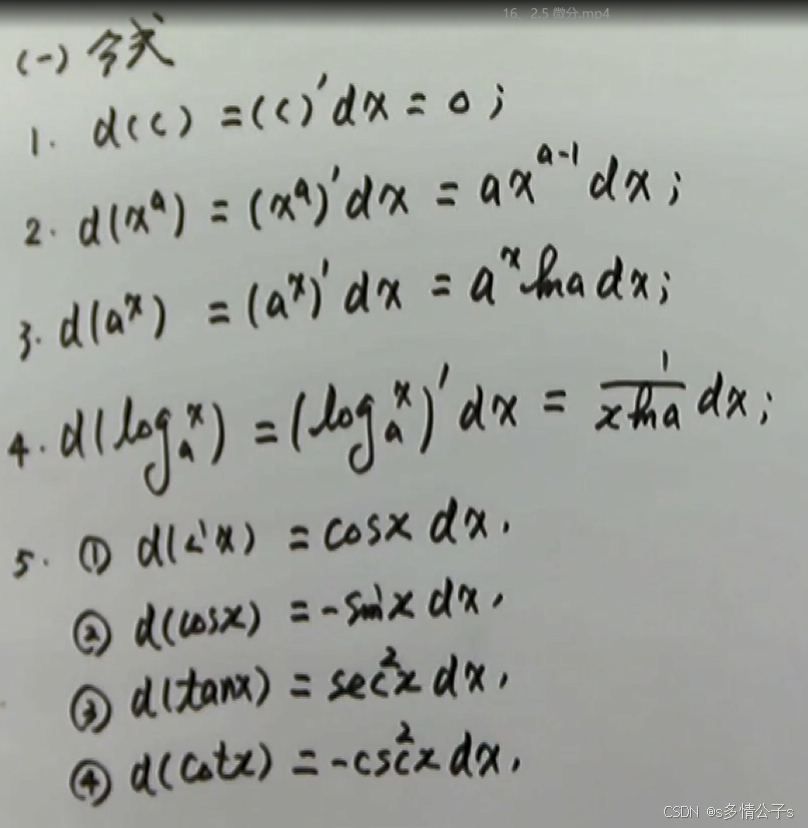 16、2.5 微分.mp4
(一) 公式
1. d(c) = (c)'dx = 0;
2. d(xᵃ) = (xᵃ)'dx = axᵃ⁻¹ dx;
3. d(aˣ) = (aˣ)'dx = aˣ lna dx;
4. d(logₐˣ) = (logₐˣ)'dx = 1/(x lna) dx;
5. ① d(sinx) = cosx dx,
② d(cosx) = -sinx dx,
③ d(tanx) = sec²x dx,
④ d(cotx) = -csc²x dx,
CSDN @s多情公子s